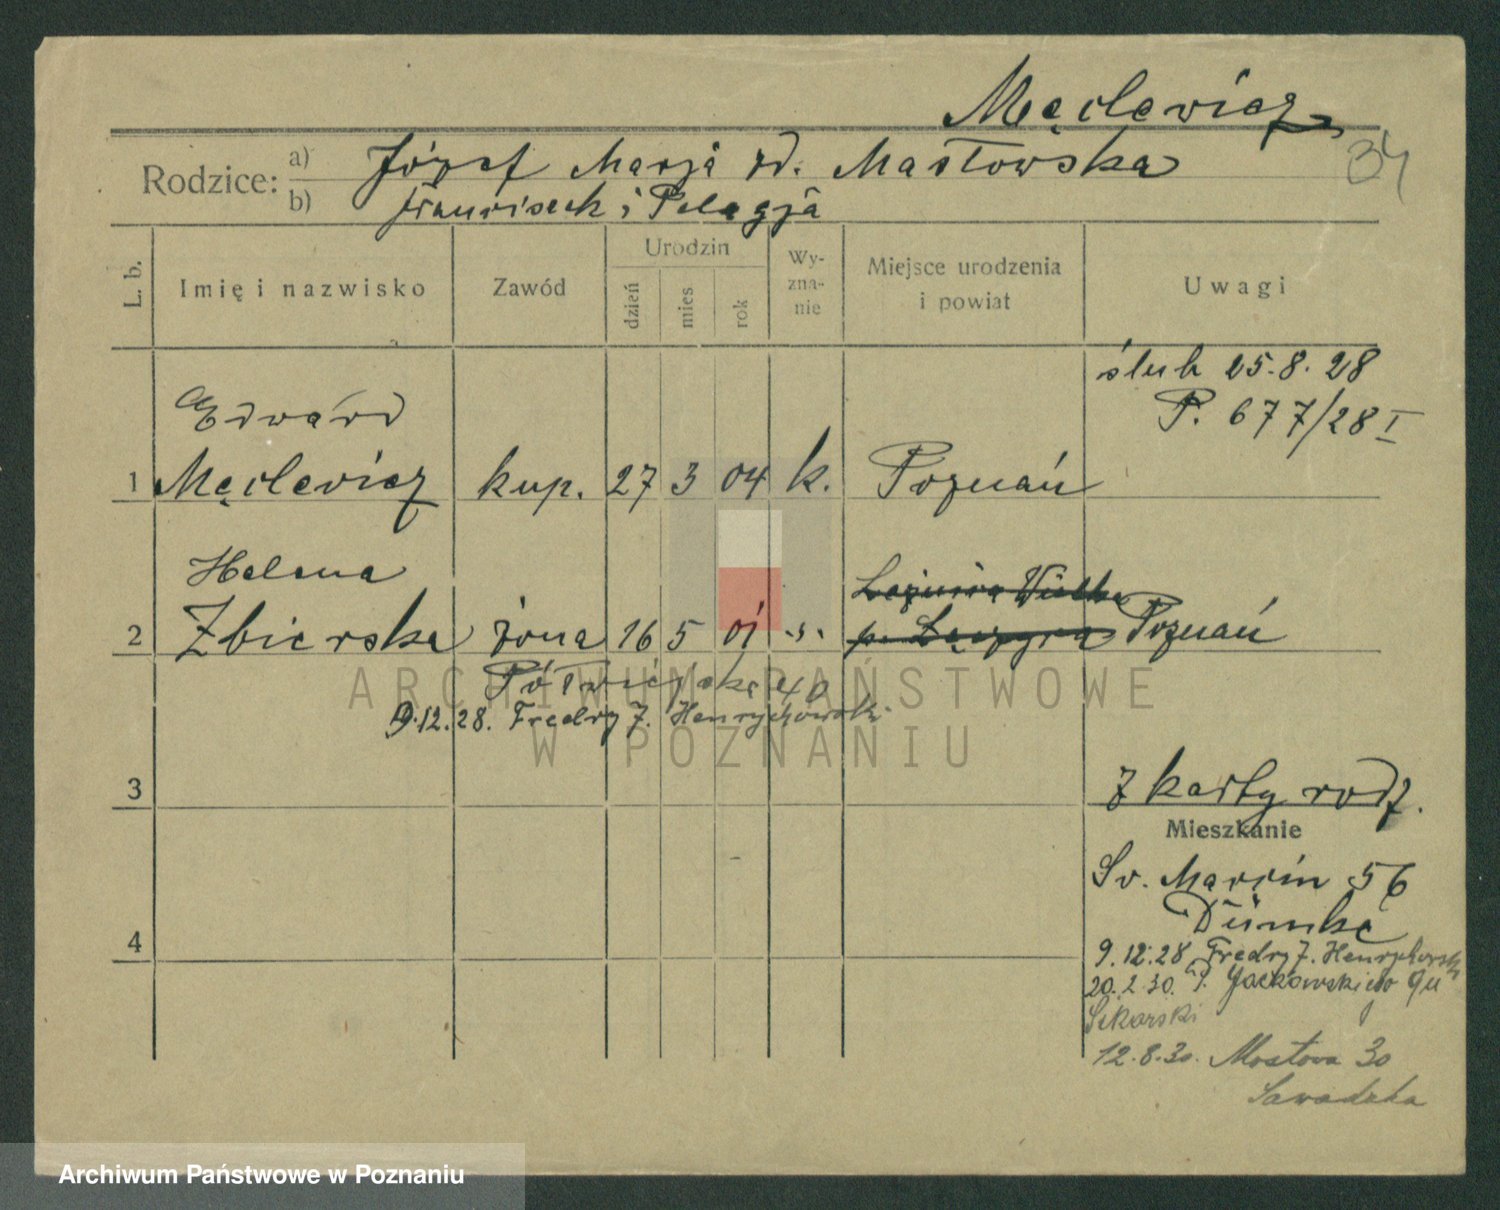 Męclewicz
34
Rodzice: a) Józef Marja zd. Masłowska
b) Franciszek i Pelagja
L. b. Imię i nazwisko Zawód Urodzin dzień mies rok Wy-zna-nie Miejsce urodzenia i powiat Uwagi
ślub 25.8.28
P. 677/28 I
Edward
1 Męclewicz kup. 27 3 04 k. Poznań
Helena
2 Zbierska żona 16 5 01 -"- Poznań
Półwiejska 40
9.12.28. Fredry 7. Henrychowski
3
z karty rodz.
Mieszkanie
Św. Marcin 56
Dümke
4
9.12.28 Fredry 7. Henrychowski
20.2.30. Jackowskiego
Sikorski
12.8.30. Mostowa 30
Sawadzka
ARCHIWUM PAŃSTWOWE
W POZNANIU
Archiwum Państwowe w Poznaniu